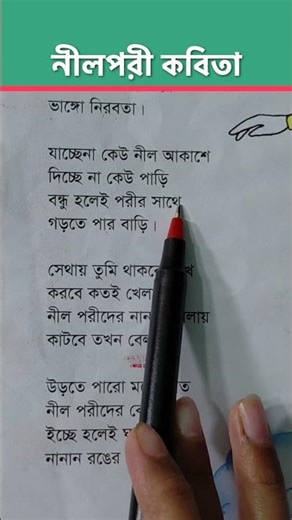 নীলপরী কবিতা
ভাঙ্গো নিরবতা।
যাচ্ছেনা কেউ নীল আকাশে
দিচ্ছে না কেউ পাড়ি
বন্ধু হলেই পরীর সাথে
গড়তে পার বাড়ি।
সেথায় তুমি
করবে কতই
নীল পরীদের
কাটবে তখন
উড়তে পারো
নীল পরীদের
ইচ্ছে হলেই
নানান রঙের